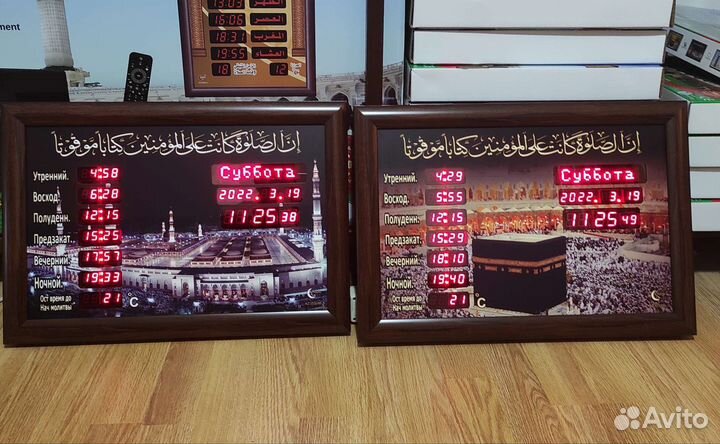 ment
13:03 الظهر
16:06 العصر
18:31 المغرب
19:55 العشاء
18
12
إن الصلوة كانت على المؤمنين كتابا موقوتا
Утренний. 4:58
Суббота
Восход. 6:28
2022. 3.19
Полуденн. 12:15
11:25 38
Предзакат. 15:25
Вечерний. 17:57
Ночной. 19:33
Ост время до
Нач молитвы
21 C
إن الصلوة كانت على المؤمنين كتابا موقوتا
Утренний. 4:29
Суббота
Восход. 5:55
2022. 3.19
Полуденн. 12:15
11:25 49
Предзакат. 15:29
Вечерний. 18:10
Ночной. 19:40
Ост время до
Нач молитвы
21 C
Avito